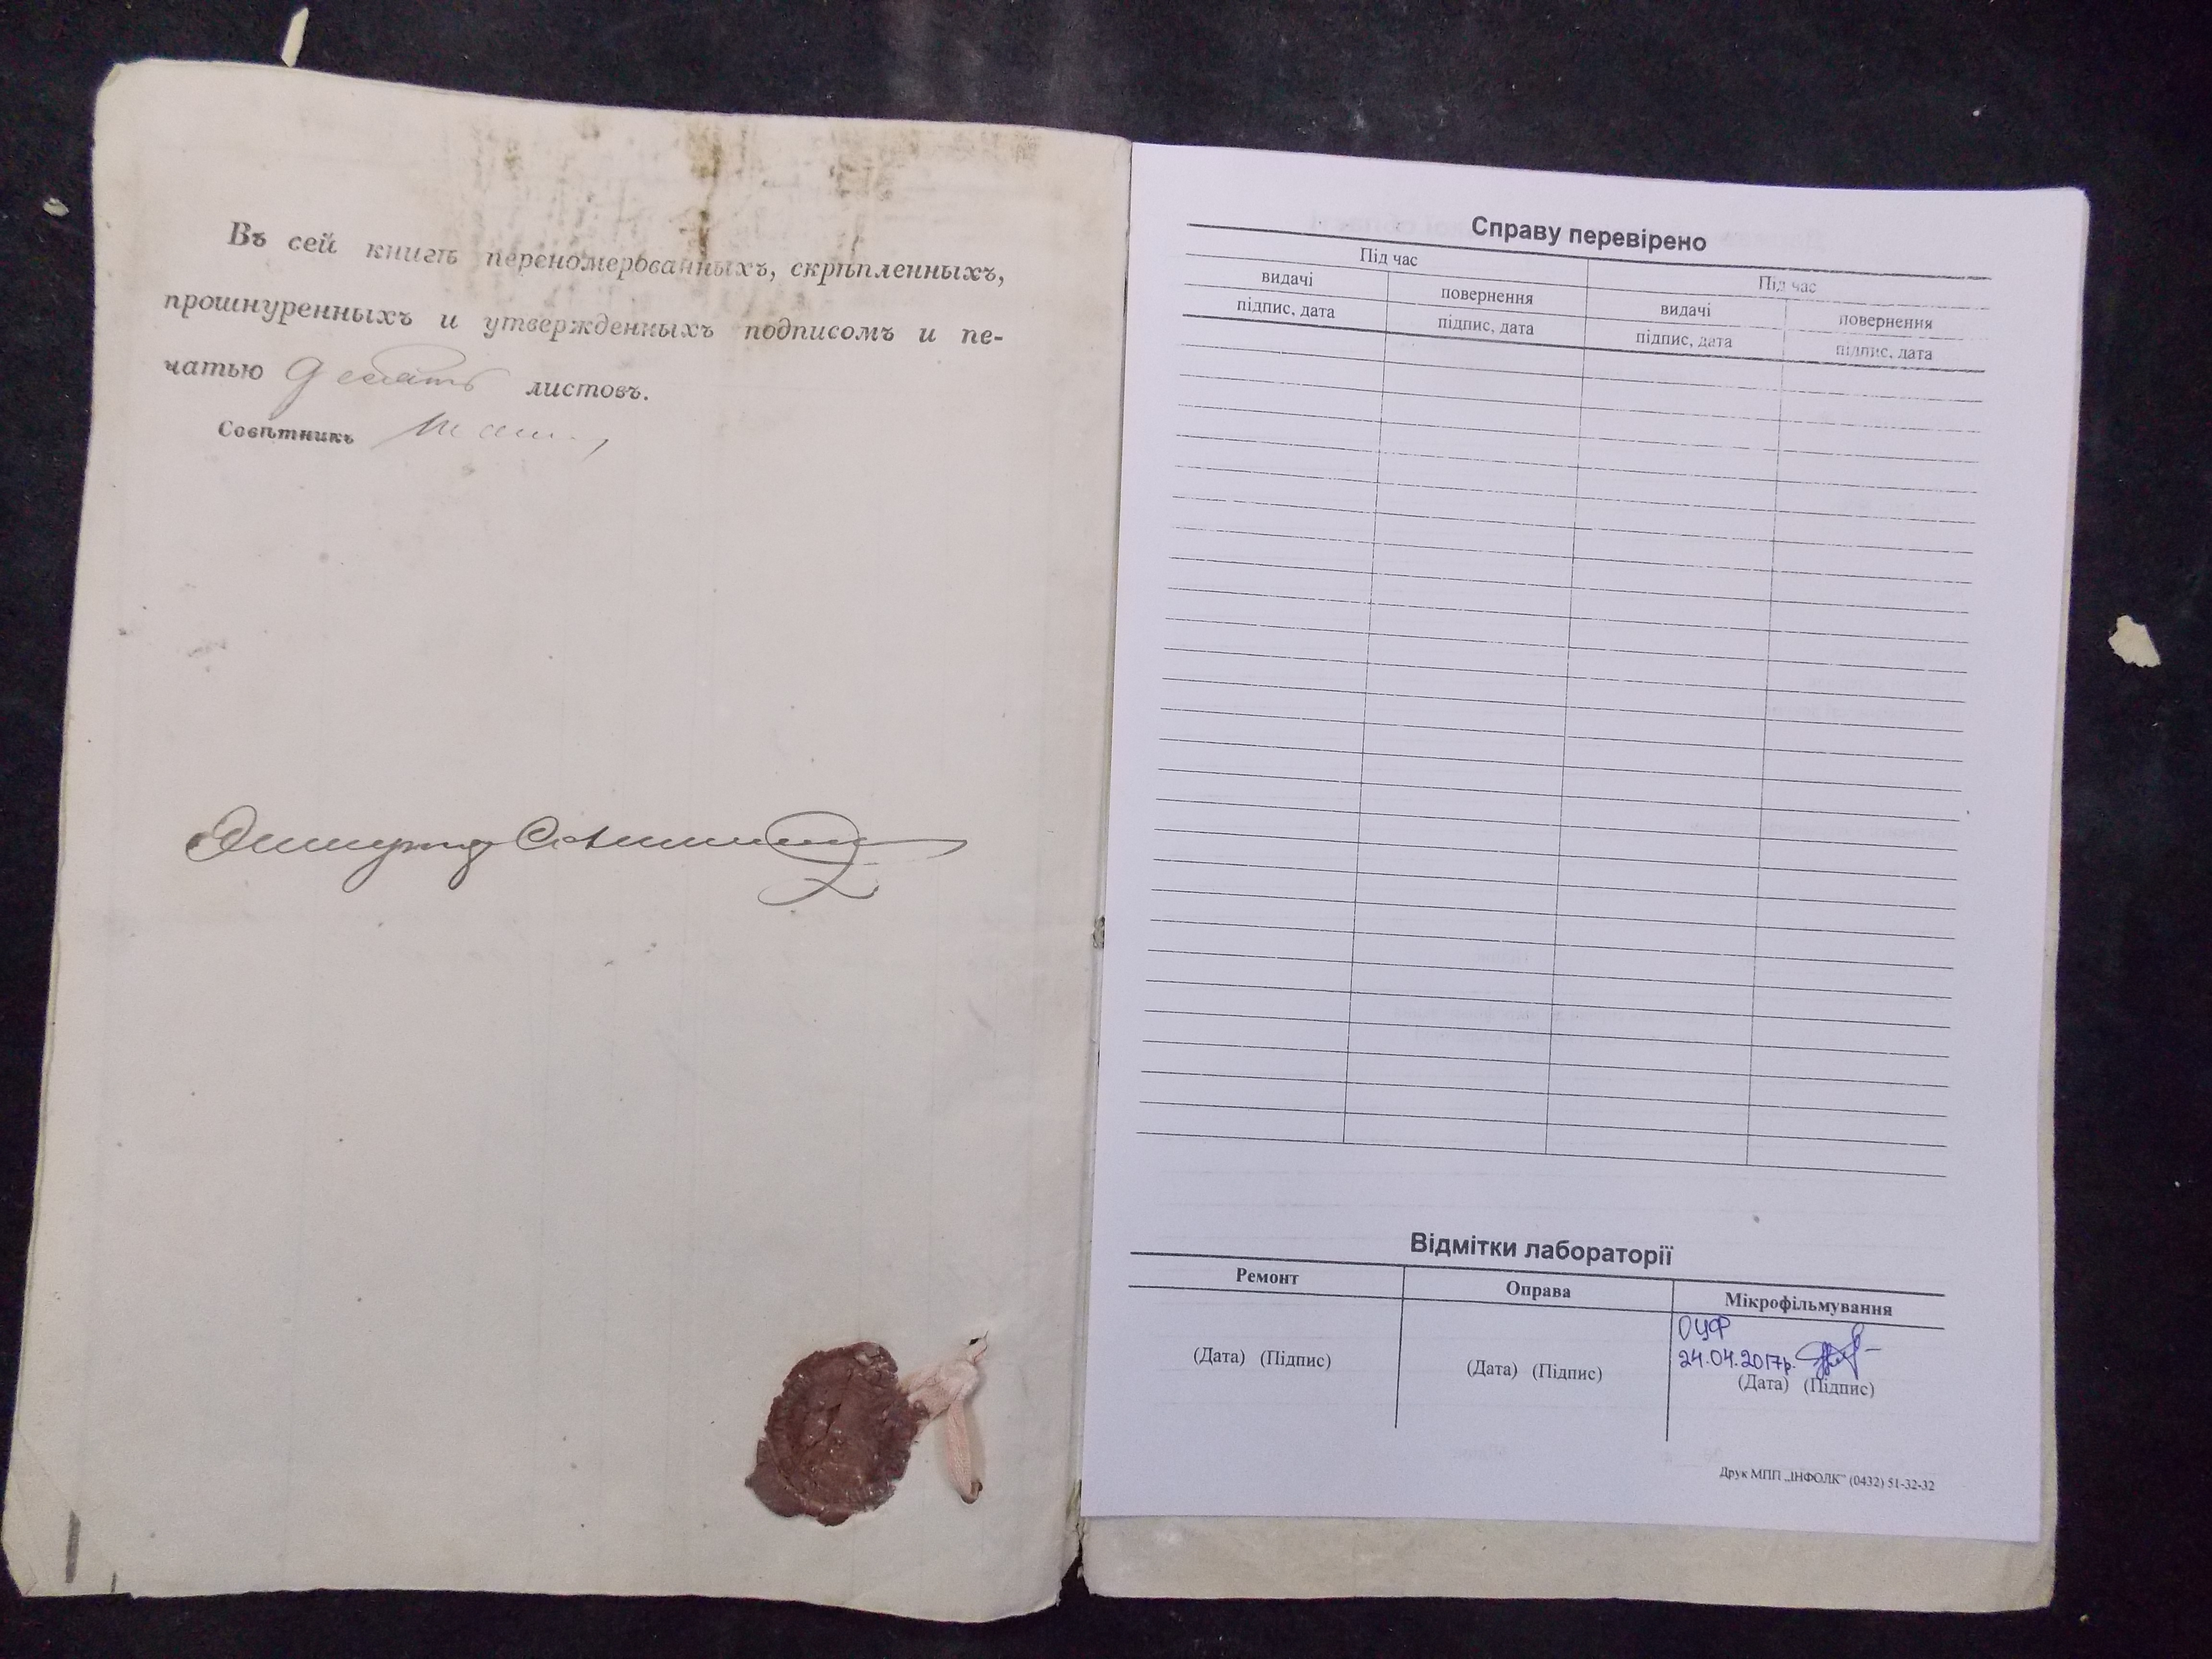 Въ сей книгѣ переномерованныхъ, скрѣпленныхъ,
прошнуренныхъ и утвержденныхъ подписомъ и пе-
чатью десять листовъ.
Совѣтникъ
Справу перевірено
Під час Під час
видачі повернення видачі повернення
підпис, дата підпис, дата підпис, дата підпис, дата
Відмітки лабораторії
Ремонт Оправа Мікрофільмування
ОЦФ
24.04.2017р.
(Дата) (Підпис) (Дата) (Підпис) (Дата) (Підпис)
Друк МПП „ІНФОЛК" (0432) 51-32-32